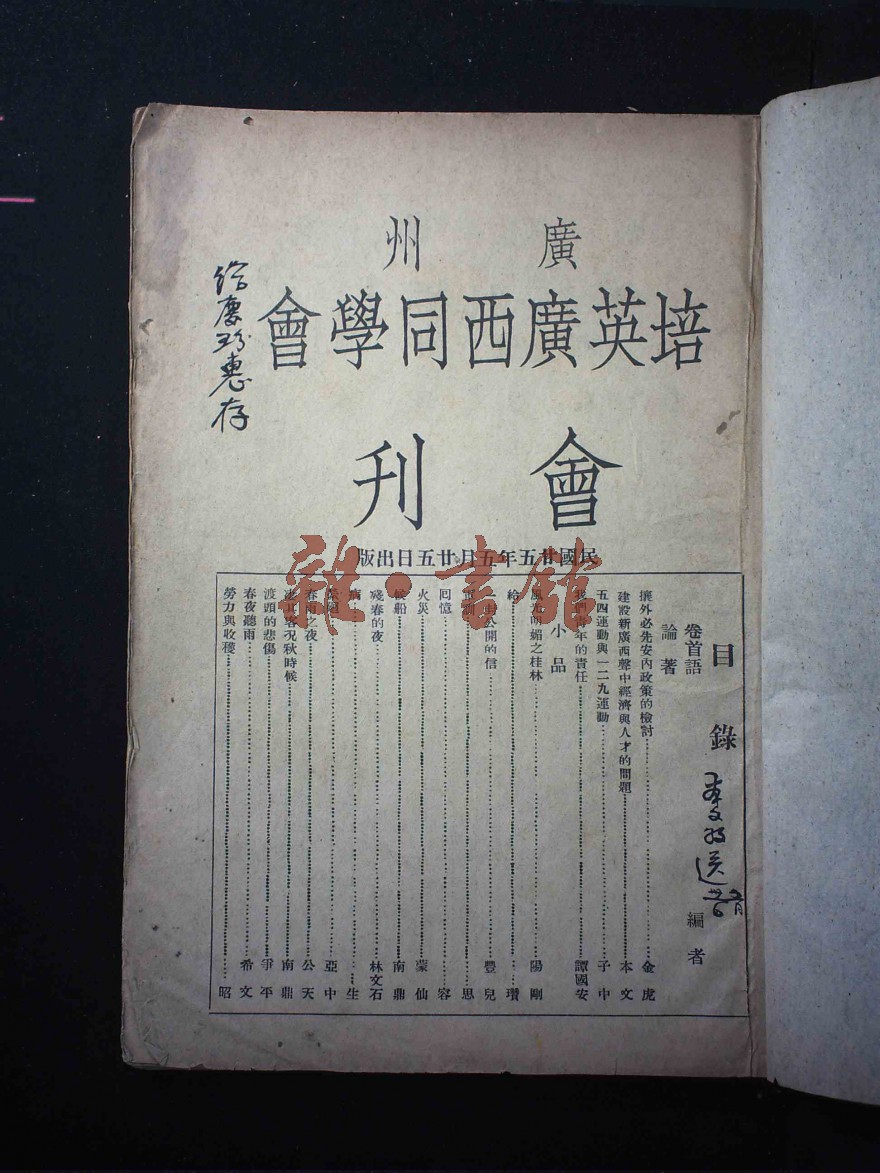 廣州
培英廣西同學會
會刊
民國廿五年五月廿五日出版
給慶珍惠存
目錄
卷首語 編者
論著
攘外必先安內政策的檢討 金虎
建設新廣西聲中經濟與人才的問題 本文
五四運動與一二九運動 子中
我們青年的責任 譚國安
小品
風光明媚之桂林 陽剛
給 瓚
一封公開的信 豐兒
思
回憶 容
火災 蒙仙
候船 南鼎
殘春的夜 林文石
病 生
亞中
春雨之夜 公天
客況秋時候 南鼎
渡頭的悲傷 爭平
春夜聽雨 希文
勞力與收穫 昭
李 送
雜·書館